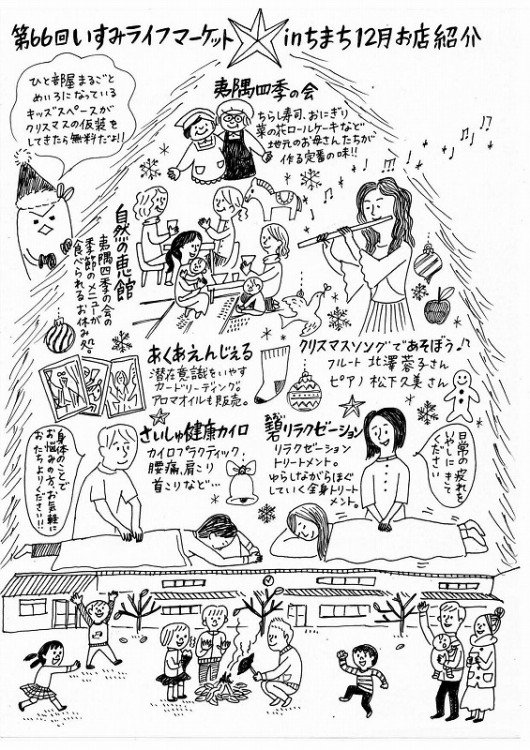 第66回いすみライフマーケット
inちまち12月お店紹介
ひと部屋まるごと
めいろになっている
キッズスペースが
クリスマスの仮装を
してきたら無料だよ!!
夷隅四季の会
ちらし寿司、おにぎり
菜の花ロールケーキなど
地元のお母さんたちが
作る定番の味!!
自然の恵館
夷隅四季の会の
季節のメニューが
食べられるお休み処。
おくあえんじぇる
潜在意識をいやす
カードリーディング。
アロマオイルも販売。
クリスマスソングであそぼう♪
フルート 北澤蓉子さん
ピアノ 松下久美さん
さいしゅ健康カイロ
カイロプラクティック。
腰痛、肩こり
首こりなど…
身体のことで
お悩みの方、お気軽に
おたちよりください!!
碧リラクゼーション
あおい
リラクゼーション
トリートメント。
ゆらしながらほぐ
していく全身トリート
メント。
日常の疲れを
いやしにきて
ください